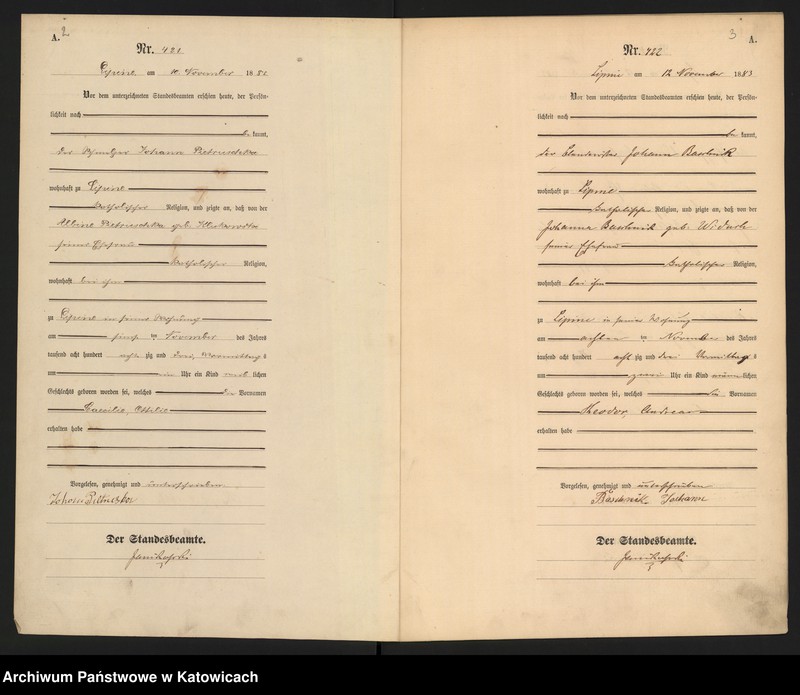 A. 2
Nr. 421
Lipine am 10 November 188
Vor dem unterzeichneten Standesbeamten erschien heute, der Persön-
lichkeit nach
be kannt,
der Johann
wohnhaft zu Lipine
katholischer Religion, und zeigte an, daß von der
Albine geb.
seiner Ehefrau
katholischer Religion,
wohnhaft bei ihm
zu Lipine in seiner Wohnung
am fünf ten November des Jahres
tausend acht hundert acht zig und drei, Vormittags
um Uhr ein Kind weib lichen
Geschlechts geboren worden sei, welches die Vornamen
Ottilie
erhalten habe
Vorgelesen, genehmigt und unterschrieben
Johann
Der Standesbeamte.
3 A.
Nr. 422
Lipine am 12 November 1883
Vor dem unterzeichneten Standesbeamten erschien heute, der Persön-
lichkeit nach
be kannt,
der Johann
wohnhaft zu Lipine
katholischer Religion, und zeigte an, daß von der
Johanna geb.
seiner Ehefrau
katholischer Religion,
wohnhaft bei ihm
zu Lipine in seiner Wohnung
am achten November des Jahres
tausend acht hundert acht zig und drei Vormittags
um zwei Uhr ein Kind männ lichen
Geschlechts geboren worden sei, welches die Vornamen
Theodor, Andreas
erhalten habe
Vorgelesen, genehmigt und unterschrieben
Johann
Der Standesbeamte.
Archiwum Państwowe w Katowicach